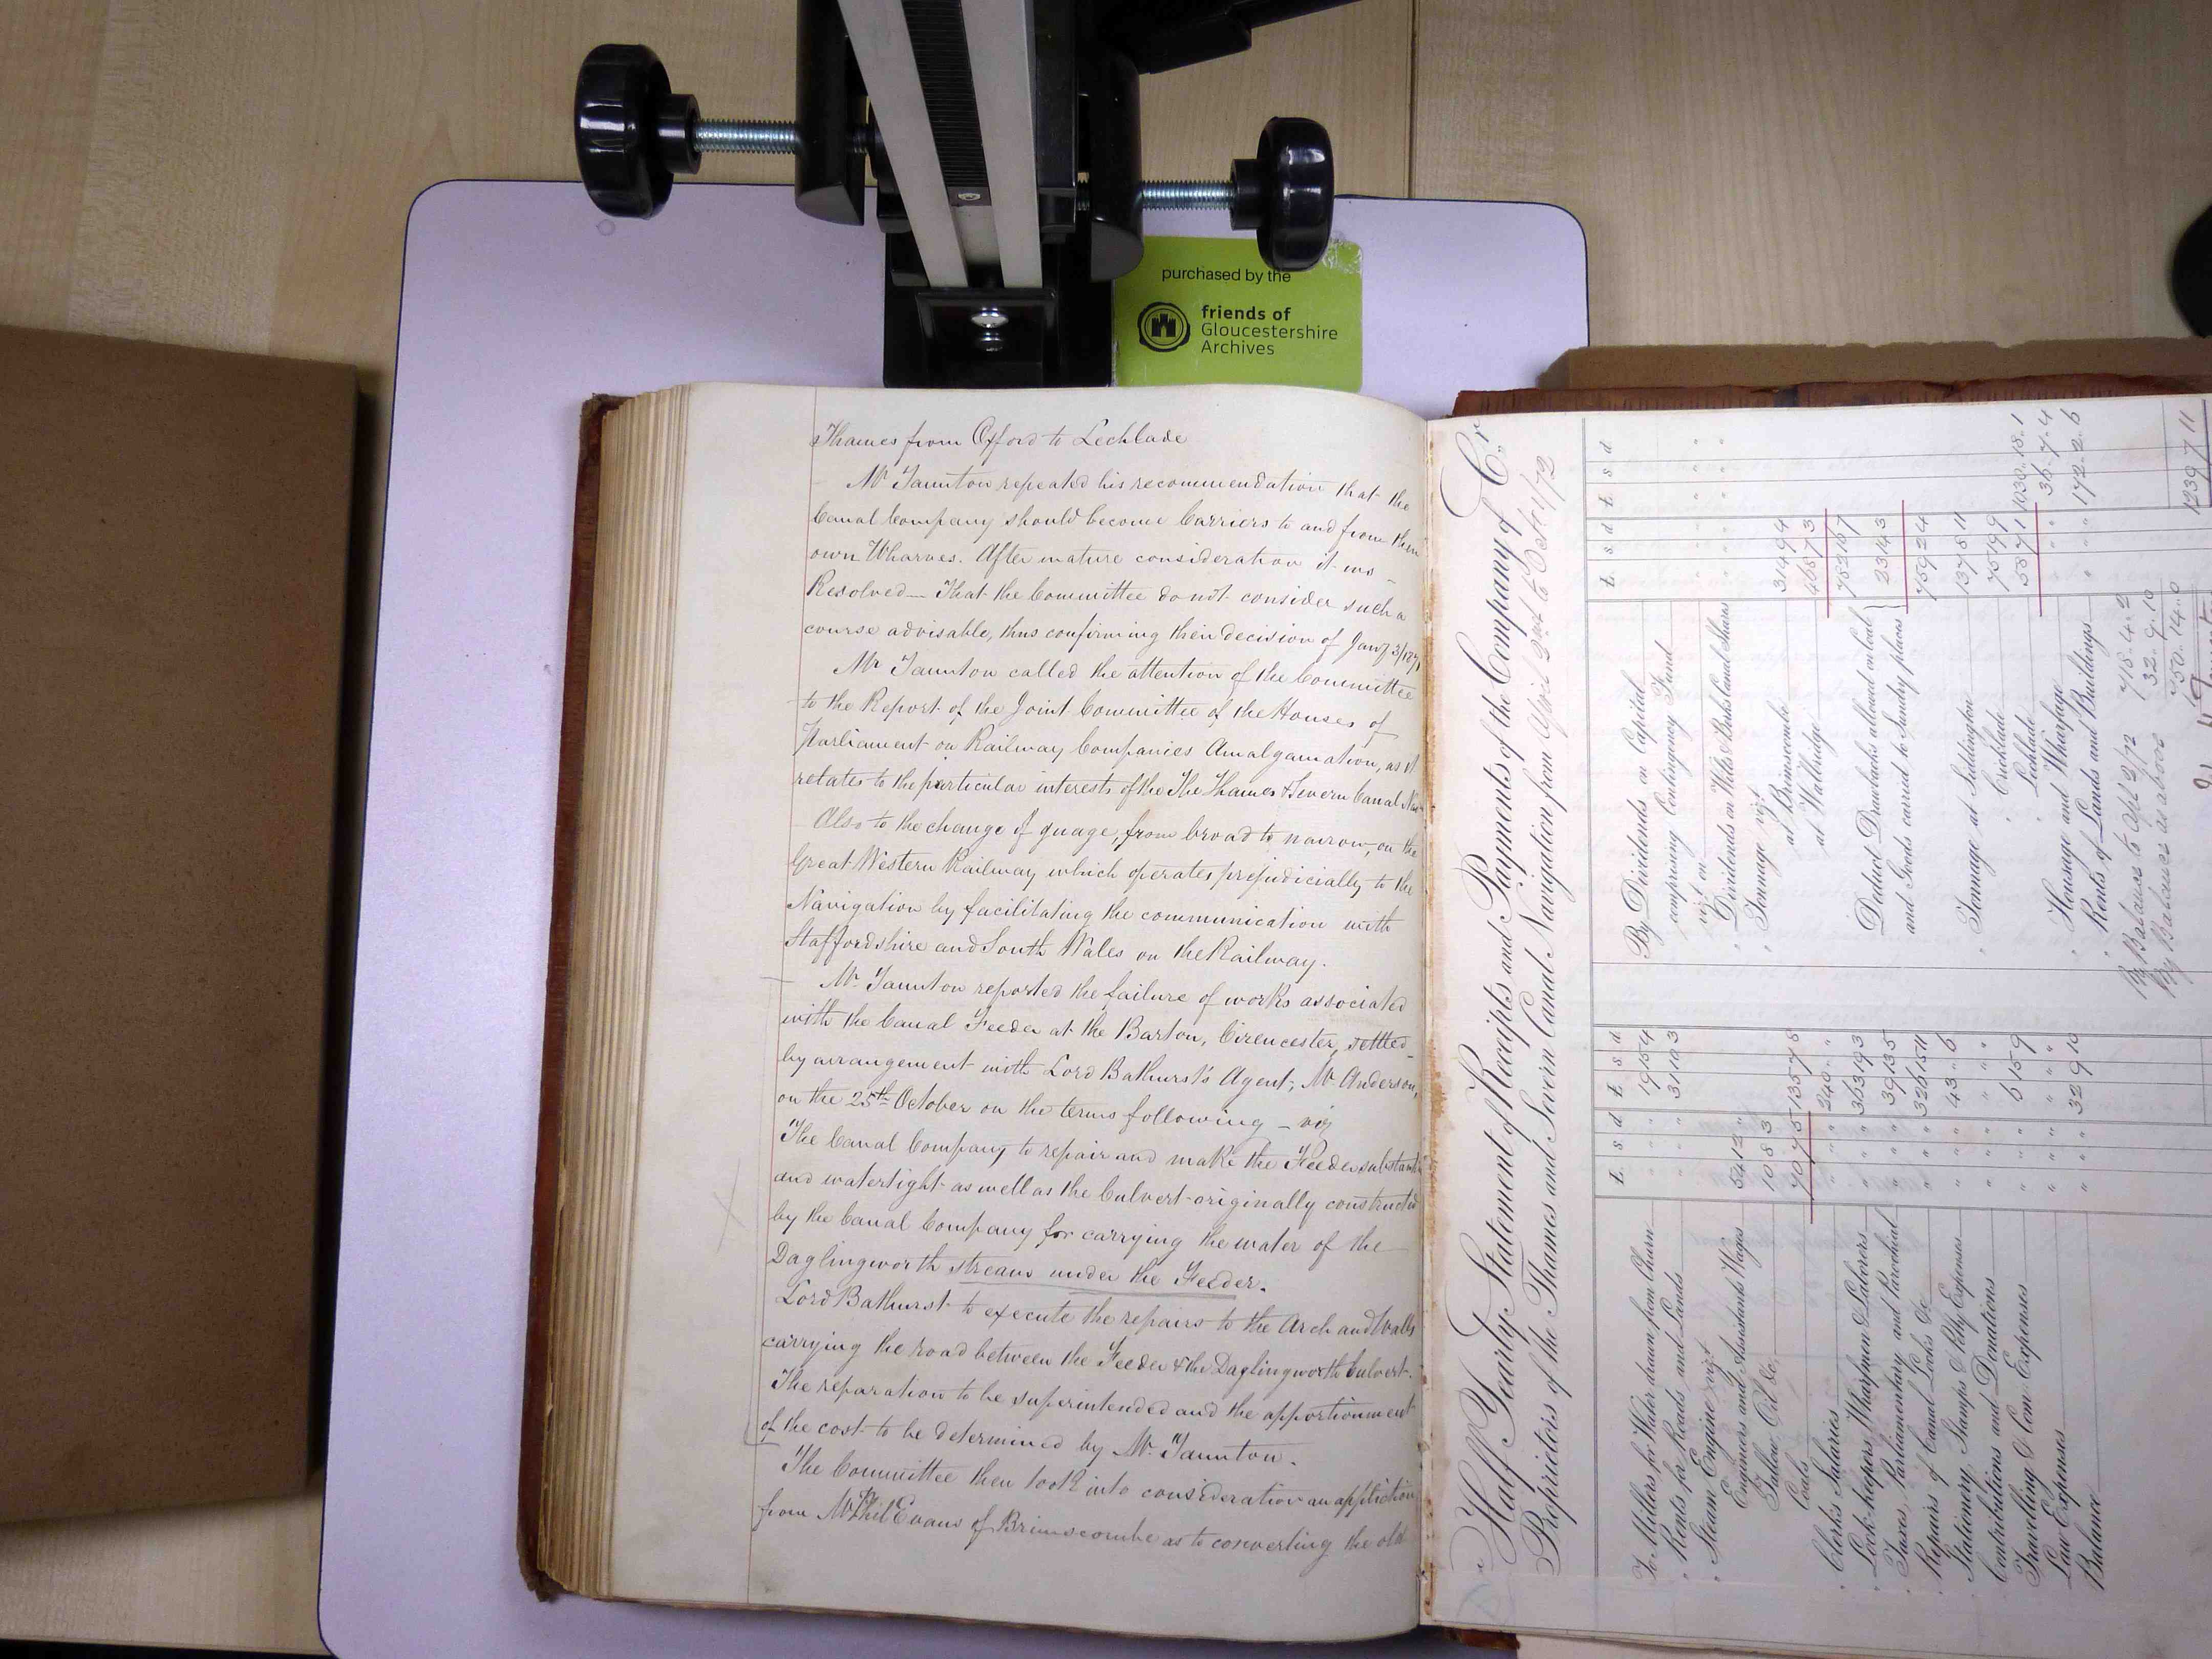 purchased by the
friends of
Gloucestershire
Archives
Thames from Oxford to Lechlade
Mr Taunton repeated his recommendation that the
Canal Company should become Carriers to and from their
own Wharves. After mature consideration it was
Resolved — That the Committee do not consider such a
course advisable, thus confirming their decision of Jany 3/
Mr Taunton called the attention of the Committee
to the Report of the Joint Committee of the Houses of
Parliament on Railway Companies Amalgamation, as it
relates to the particular interests of the The Thames & Severn Canal
Also to the change of guage, from broad to narrow, on the
Great Western Railway which operates prejudicially to the
Navigation by facilitating the communication with
Staffordshire and South Wales on the Railway.
Mr Taunton reported the failure of works associated
with the Canal Feeder at the Barton, Cirencester, settled
by arrangement with Lord Bathurst's Agent, Mr Anderson,
on the 25th October on the terms following — viz
The Canal Company to repair and make the Feeder
and watertight as well as the Culvert originally constructed
by the Canal Company for carrying the water of the
Daglingworth stream under the Feeder.
Lord Bathurst to execute the repairs to the Arch and Walls
carrying the road between the Feeder & the Daglingworth Culvert.
The reparation to be superintended and the apportionment
of the cost to be determined by Mr Taunton.
The Committee then took into consideration an
from Mr Phil Evans of Brimscombe as to converting the old
Half Yearly Statement of Receipts and Payments of the Company of Cr
Proprietors of the Thames and Severn Canal Navigation from April 2nd to Oct 1/72
£ s d £ s d
To Millers for Water drawn from Churn " " 19 15 4
" Rents for Roads and Lands " " 31 10 3
" Steam Engine vizt
Engineers and Assistants Wages 54 12 "
Tallow, Oil &c 10 8 3
Coals 70 7 5 135 7 8
" Clerks Salaries " " 240 " "
" Lock-keepers Wharfmen & Laborers " " 363 19 3
" Taxes, Parliamentary and Parochial " " 39 13 5
" Repairs of Canal, Locks &c " " 326 15 11
Stationery, Stamps & Petty Expenses " " 43 " 6
Contributions and Donations " " " "
Travelling & Com. Expenses " " 6 15 9
Law Expenses " " " "
Balance " " 32 9 10
£ s d £ s d
By Dividends on Capital
comprising Contingency Fund
vizt on
" Dividends on Wilts & Berks Land Shares " "
" Tonnage vizt
at Brimscombe 314 9 4
at Wallbridge 468 7 3
782 16 7
Deduct Drawbacks allowed on Coal
and Goods carried to Sundry places 23 14 3
759 2 4
" Tonnage at Siddington 137 8 11
" Cricklade 75 19 9
" Lechlade 58 7 1 1030 18 1
" Housage and Wharfage " " 36 7 4
" Rents of Lands and Buildings " " 172 2 6
By Balance to Apl 2/72 718 . 4 . 2
By Balance as above 32 . 9 . 10
750 . 14 . 0
1239 7 11